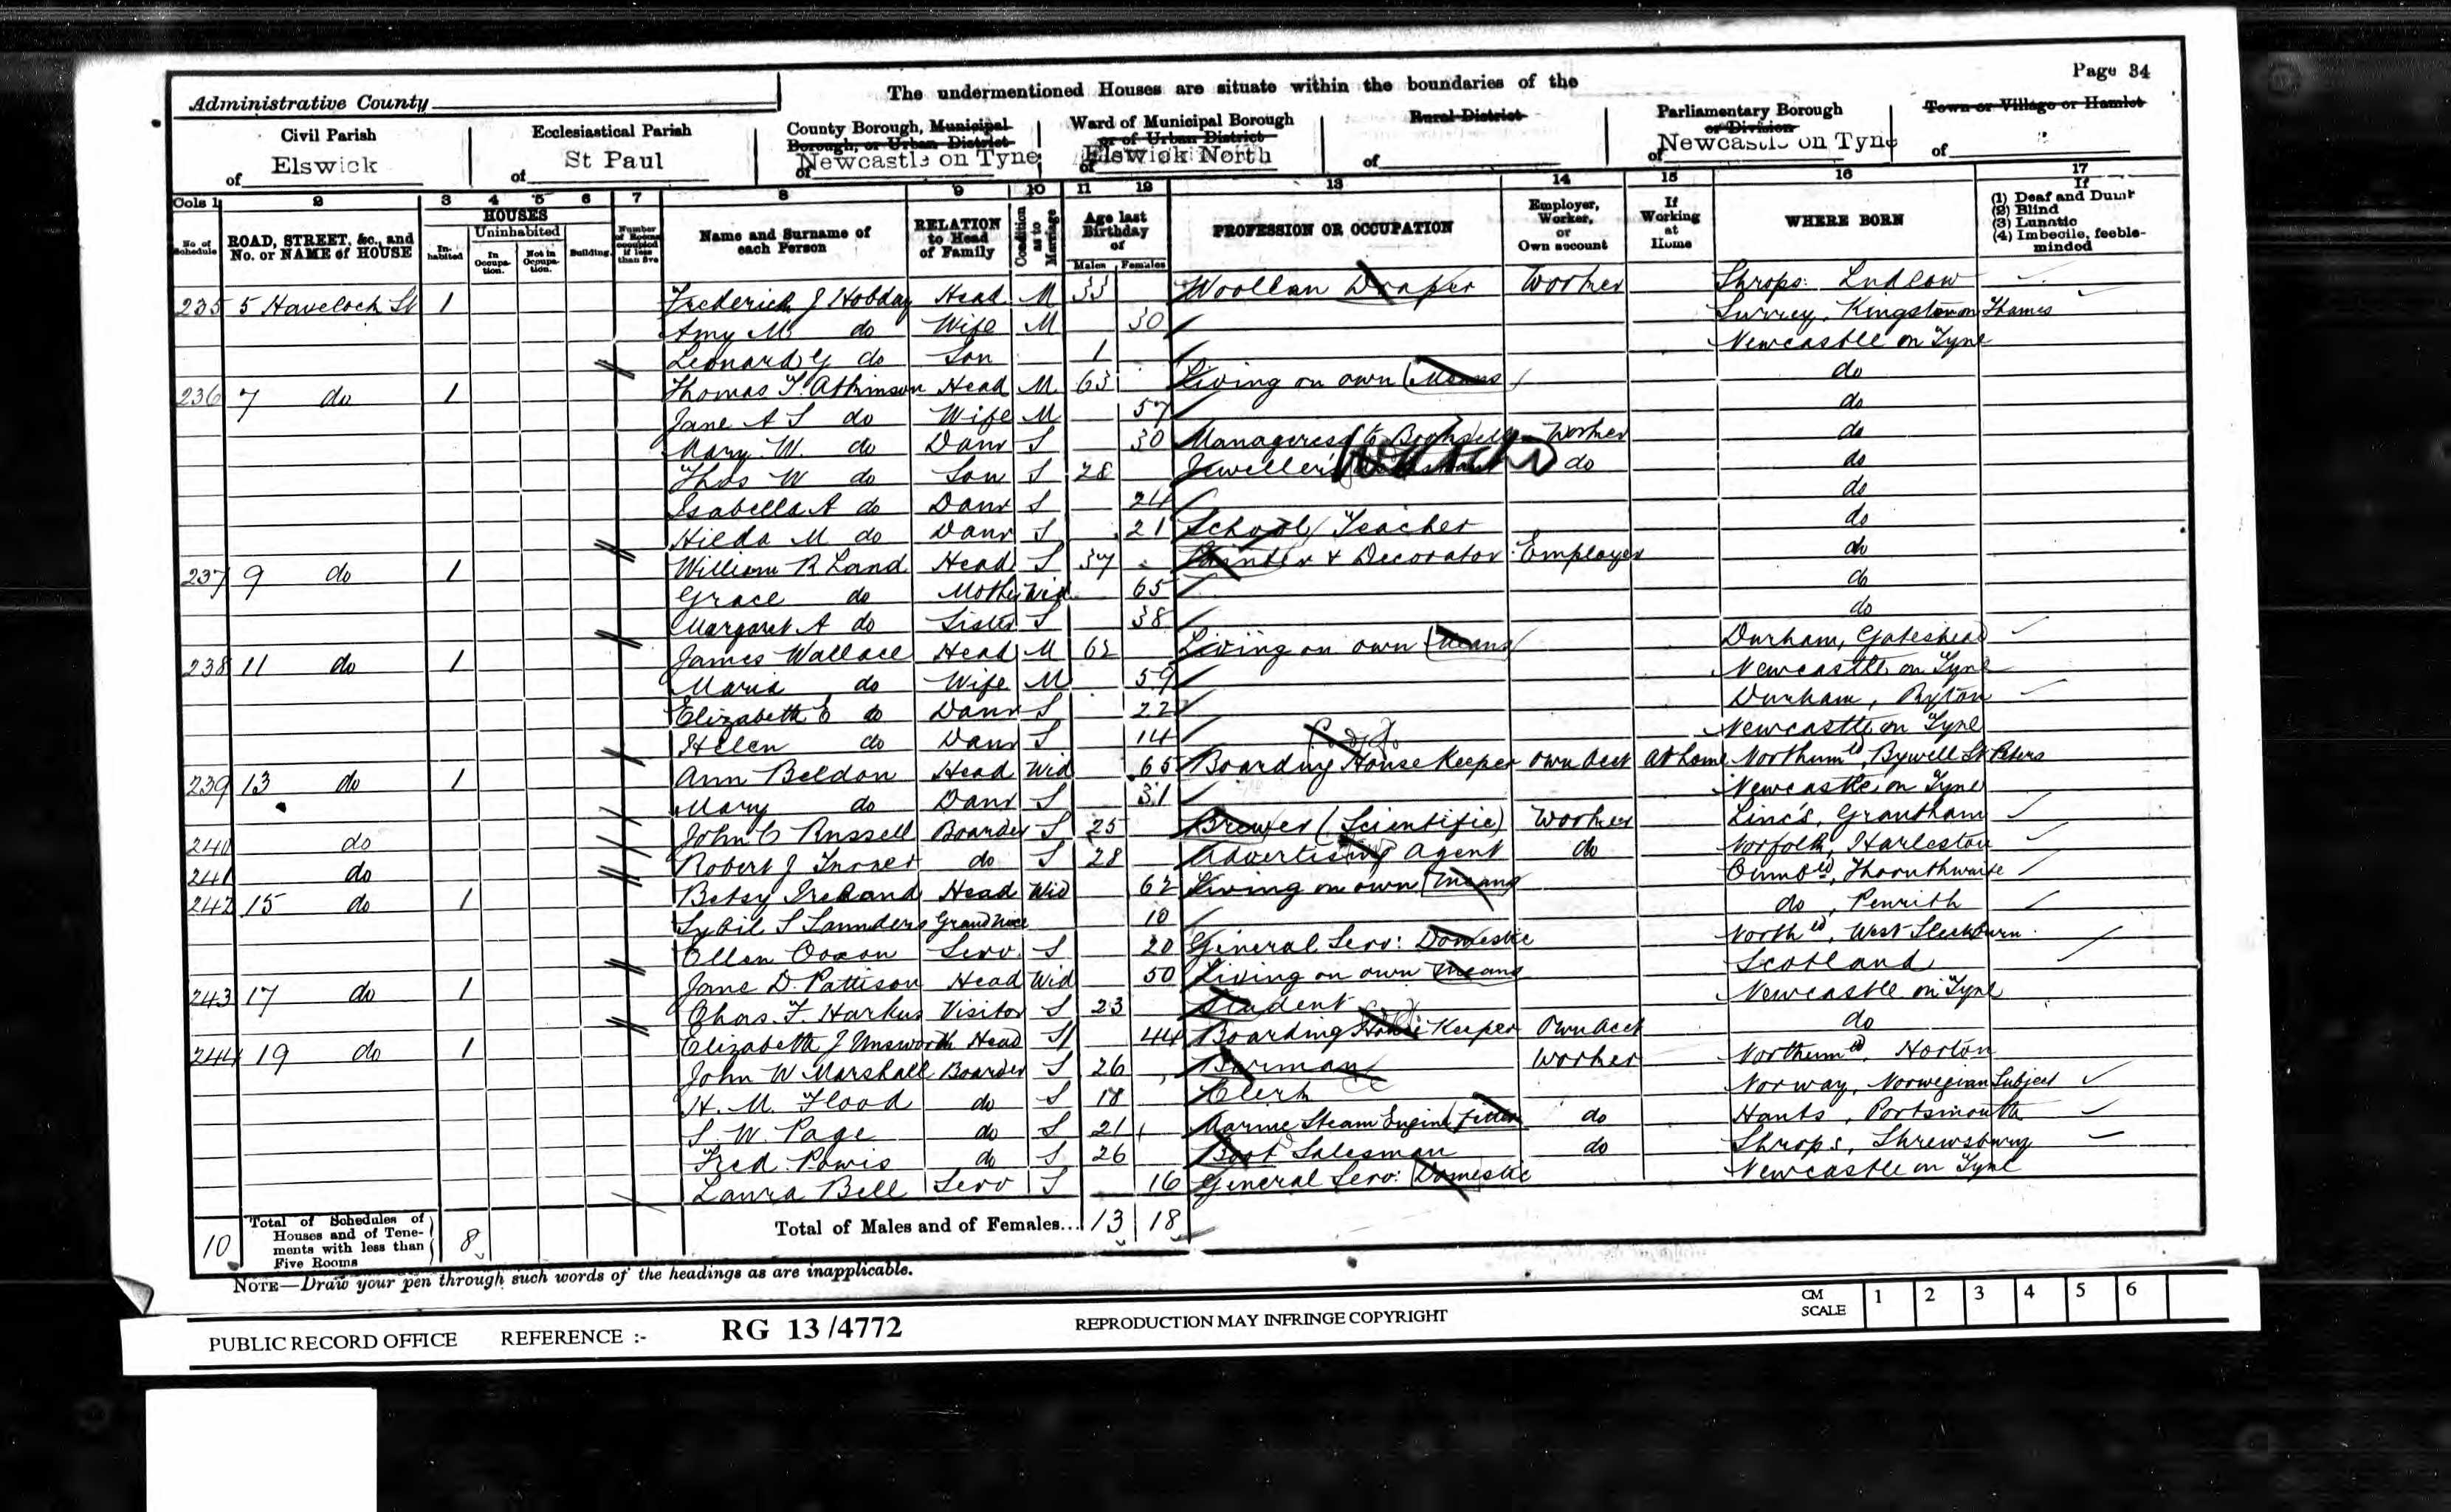 Page 34
The undermentioned Houses are situate within the boundaries of the
Administrative County
Civil Parish
of Elswick
Ecclesiastical Parish
of St Paul
County Borough, Municipal Borough, or Urban District
of Newcastle on Tyne
Ward of Municipal Borough or of Urban District
of Elswick North
Rural District
of
Parliamentary Borough or Division
of Newcastle on Tyne
Town or Village or Hamlet
of
Cols 1 2 3 4 5 6 7 8 9 10 11 12 13 14 15 16 17
No. of Schedule
ROAD, STREET, &c., and No. or NAME of HOUSE
HOUSES
Inhabited
Uninhabited
In Occupation.
Not in Occupation.
Building
Number of Rooms occupied if less than five
Name and Surname of each Person
RELATION to Head of Family
Condition as to Marriage
Age last Birthday of
Males Females
PROFESSION OR OCCUPATION
Employer, Worker, or Own account
If Working at Home
WHERE BORN
If
(1) Deaf and Dumb
(2) Blind
(3) Lunatic
(4) Imbecile, feeble-minded
235 5 Havelock St 1 Frederick J Hobday Head M 33 Woollen Draper Worker Shrops: Ludlow
Amy M. do Wife M 30 Surrey, Kingston on Thames
Leonard G do Son 1 Newcastle on Tyne
236 7 do 1 Thomas T. Atkinson Head M 63 Living on own Means do
Jane A S do Wife M 57 do
Mary W. do Daur S 30 Manageress to Worker do
Thos W do Son S 28 Jeweller's do do
Isabella A do Daur S 24 do
Hilda M do Daur S 21 School Teacher do
237 9 do 1 William R Land Head S 37 Painter & Decorator Employer do
Grace do Mother Wid 65 do
Margaret A do Sister S 38 do
238 11 do 1 James Wallace Head M 62 Living on own Means Durham, Gateshead
Maria do Wife M 59 Newcastle on Tyne
Elizabeth E do Daur S 22 Durham, Ryton
Helen do Daur S 14 Newcastle on Tyne
239 13 do 1 Ann Beldon Head Wid 65 Boarding House Keeper Own Acct At home Northumd, Bywell St Peters
Mary do Daur S 31 Newcastle on Tyne
240 do John C Russell Boarder S 25 Brewer (Scientific) Worker Lincs, Grantham
241 do Robert J do S 28 Advertising Agent do Norfolk, Harleston
242 15 do 1 Betsy Ireland Head Wid 62 Living on own Means Cumbd, Thornthwaite
Sybil S Saunders Grand Niece 10 do, Penrith
Ellen Serv S 20 General Serv: Domestic Northd, West Sleekburn
243 17 do 1 Jane D. Pattison Head Wid 50 Living on own Means Scotland
Chas. F Harkus Visitor S 23 Student Newcastle on Tyne
244 19 do 1 Elizabeth J Unsworth Head S 44 Boarding House Keeper Own Acct do
John W Marshall Boarder S 26 Barman Worker Northumd, Horton
H. M. Flood do S 18 Clerk Norway, Norwegian Subject
S. W. Page do S 21 Marine Steam Engine Fitter do Hants, Portsmouth
Fred Powis do S 26 Boot Salesman do Shrops, Shrewsbury
Laura Bell Serv S 16 General Serv: Domestic Newcastle on Tyne
10 Total of Schedules of Houses and of Tenements with less than Five Rooms 8 Total of Males and of Females... 13 18
NOTE—Draw your pen through such words of the headings as are inapplicable.
PUBLIC RECORD OFFICE REFERENCE :- RG 13/4772 REPRODUCTION MAY INFRINGE COPYRIGHT
CM SCALE 1 2 3 4 5 6